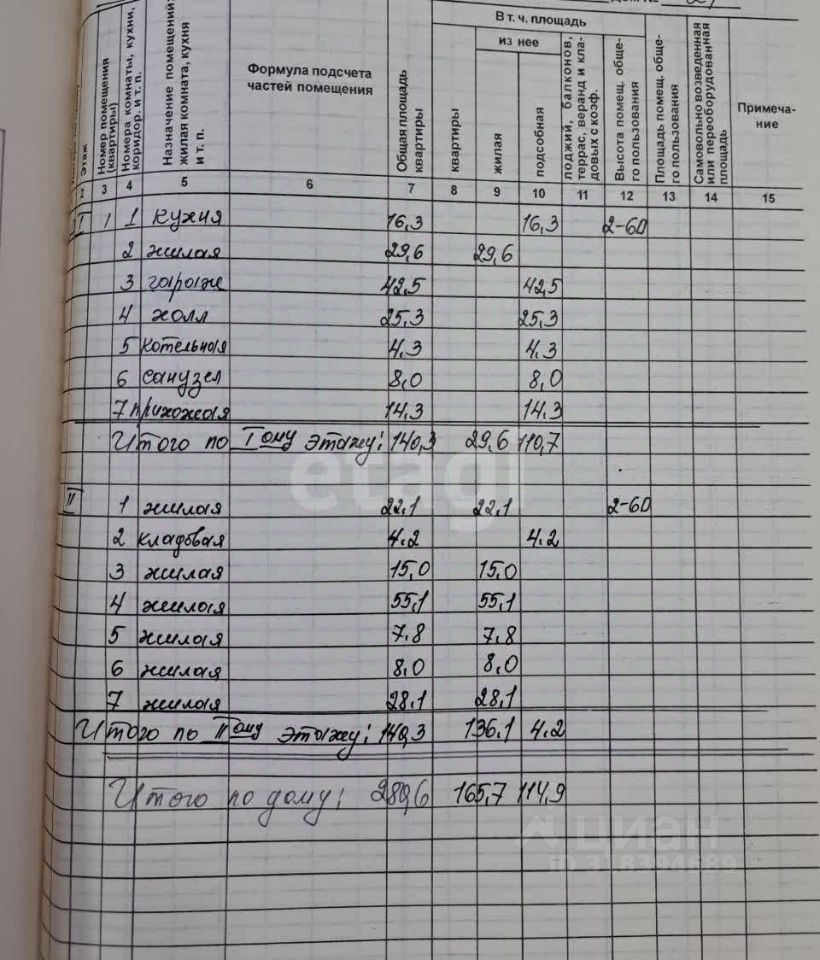 В т. ч. площадь
из нее
Этаж
Номер помещения (квартиры)
Номера комнаты, кухни, коридор. и т. п.
Назначение помещений: жилая комната, кухня и т. п.
Формула подсчета частей помещения
Общая площадь квартиры
квартиры
жилая
подсобная
лоджий, балконов, террас, веранд и кладовых с коэф.
Высота помещ. общего пользования
Площадь помещ. общего пользования
Самовольно возведенная или переоборудованная площадь
Примечание
2 3 4 5 6 7 8 9 10 11 12 13 14 15
I 1 1 кухня 16,3 16,3 2-60
2 жилая 29,6 29,6
3 гараж 42,5 42,5
4 холл 25,3 25,3
5 котельная 4.3 4.3
6 санузел 8,0 8,0
7 прихожая 14.3 14.3
Итого по Iому этажу: 140,3 29,6 110,7
etagi
II 1 жилая 22,1 22,1 2-60
2 кладовая 4.2 4.2
3 жилая 15,0 15,0
4 жилая 55,1 55,1
5 жилая 7,8 7,8
6 жилая 8,0 8,0
7 жилая 28,1 28,1
Итого по IIому этажу: 140,3 136,1 4.2
Итого по дому: 280,6 165,7 114,9
ЦИАН